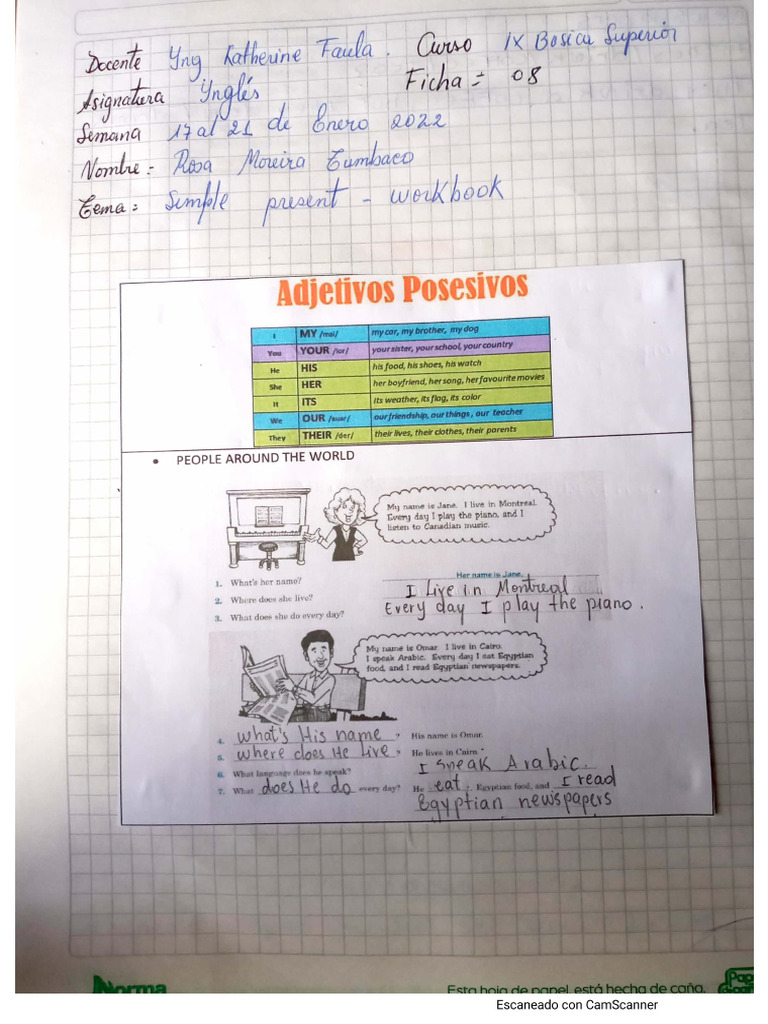 Docente Yng Katherine Faula. Curso IX Bosica Superior
Asignatura Ynglés Ficha = 08
Semana 17 al 21 de Enero 2022
Nombre = Rosa Moreira Tumbaco
Tema = Simple present - workbook
Adjetivos Posesivos
I MY /mai/ my car, my brother, my dog
You YOUR /ior/ your sister, your school, your country
He HIS his food, his shoes, his watch
She HER her boyfriend, her song, her favourite movies
It ITS its weather, its flag, its color
We OUR our friendship, our things, our teacher
They THEIR /der/ their lives, their clothes, their parents
• PEOPLE AROUND THE WORLD
My name is Jane. I live in Montreal.
Every day I play the piano, and I
listen to Canadian music.
1. What's her name? Her name is Jane.
2. Where does she live? I Live in Montreal
3. What does she do every day? Every day I play the piano.
My name is Omar. I live in Cairo.
I speak Arabic. Every day I eat Egyptian
food, and I read Egyptian newspapers.
4. what's His name ? His name is Omar.
5. where does He Live ? He lives in Cairo.
6. What language does he speak? I speak Arabic.
7. What does He do every day? He eat. Egyptian food, and I read
Egyptian newspapers
Norma
Esta hoja de papel está hecha de caña.
Escaneado con CamScanner